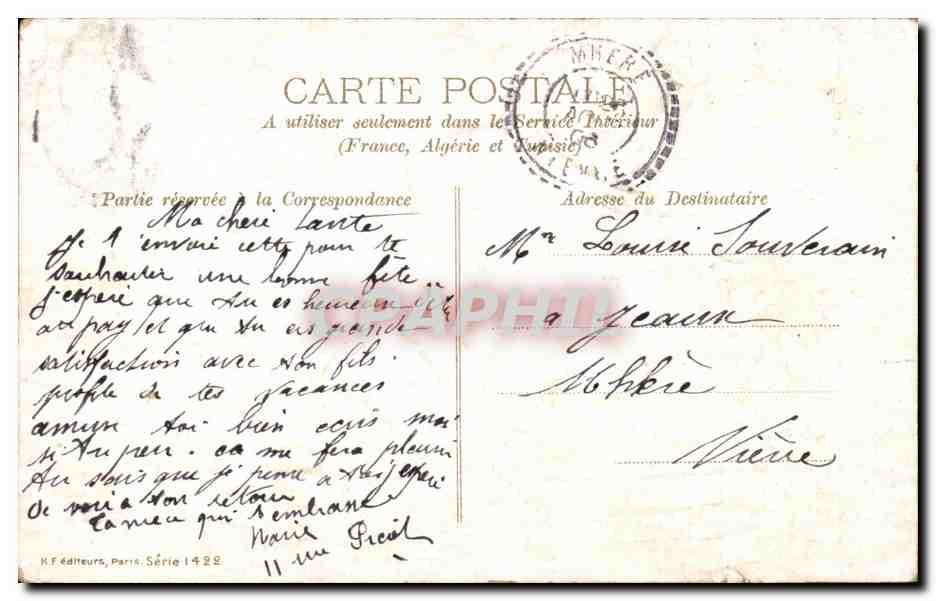 MHERE
CARTE POSTALE
A utiliser seulement dans le Service Intérieur
(France, Algérie et Tunisie)
Partie réservée à la Correspondance
Adresse du Destinataire
Ma chère tante
Je t'envoie cette pour te
souhaiter une bonne fête
j'espère que tu es heureuse
au pays et que tu as grande
satisfaction avec ton fils.
profite de tes vacances
amuse toi bien ecris moi
si tu peu. ca me fera plaisir
tu sais que je pense a toi j'espere
de voir a ton retour
ta niece qui t'embrasse
Marie
11 rue Picot
Louise Souverain
a Jeaux
Mhère
Nièvre
CPAPHIL
K F éditeurs, Paris. Série 1422